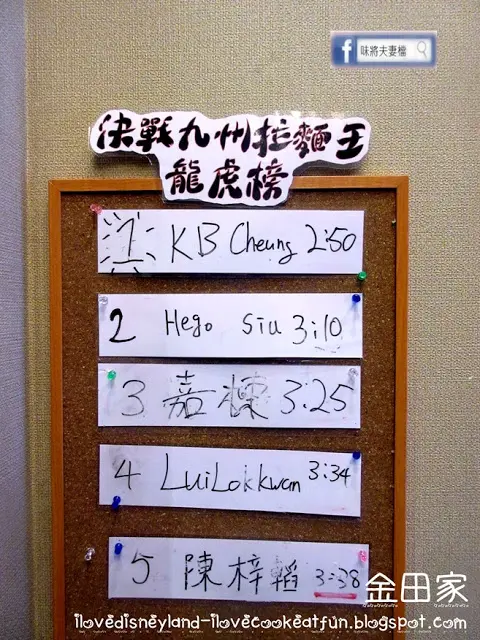 味將夫妻檔
決戰九州拉麵王
龍虎榜
1 KB Cheung 2:50
2 Hego Siu 3:10
3 嘉棟 3:25
4 Lui Lok Kwan 3:34
5 陳梓韜 3:38
金田家
ilovedisneyland-ilovecookeatfun.blogspot.com